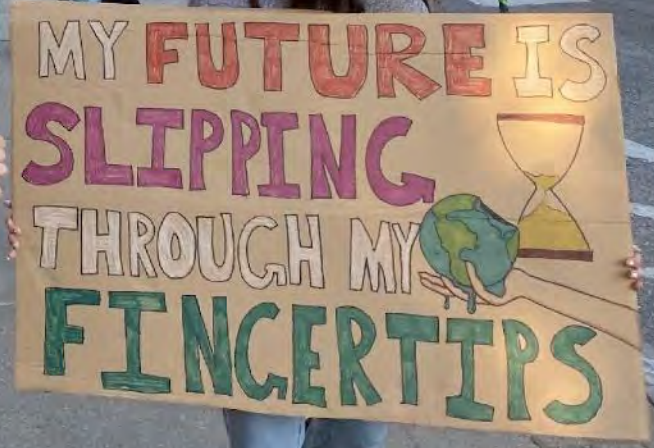 MY FUTURE IS
SLIPPING
THROUGH MY
FINGERTIPS